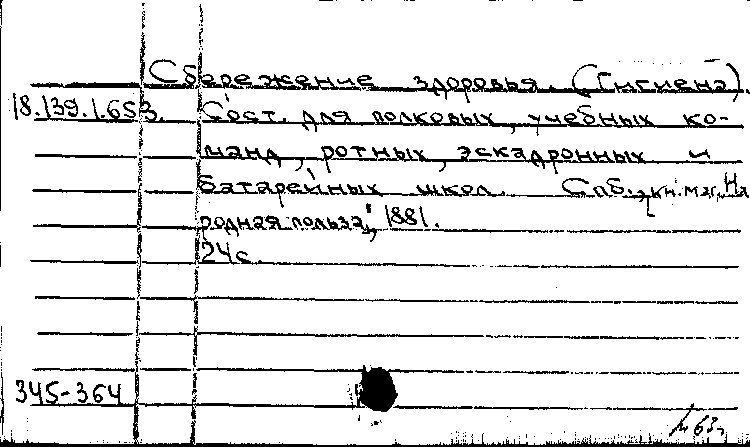 Сбережение здоровья. (Гигиена).
18.139.1.653. Сост. для полковых, учебных ко-
манд, ротных, эскадронных и
батарейных школ. Спб., кн. маг. "На
родная польза", 1881.
24с.
345-364